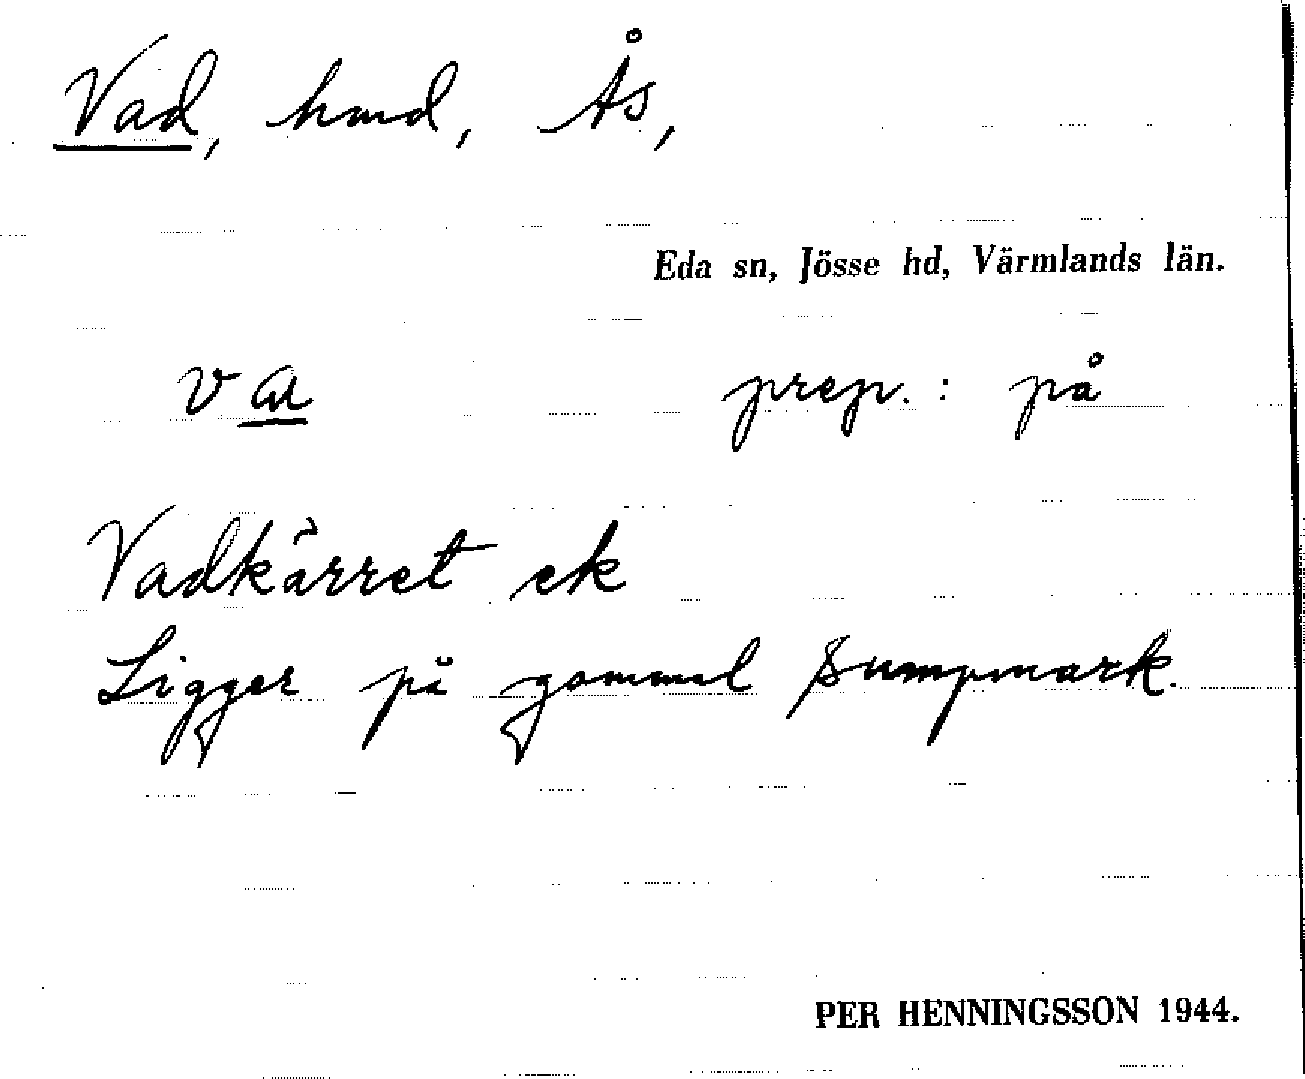 Vad, hmd, Ås,
Eda sn, Jösse hd, Värmlands län.
va prep.: på
Vadkärret ek
Ligger på gammal sumpmark.
PER HENNINGSSON 1944.